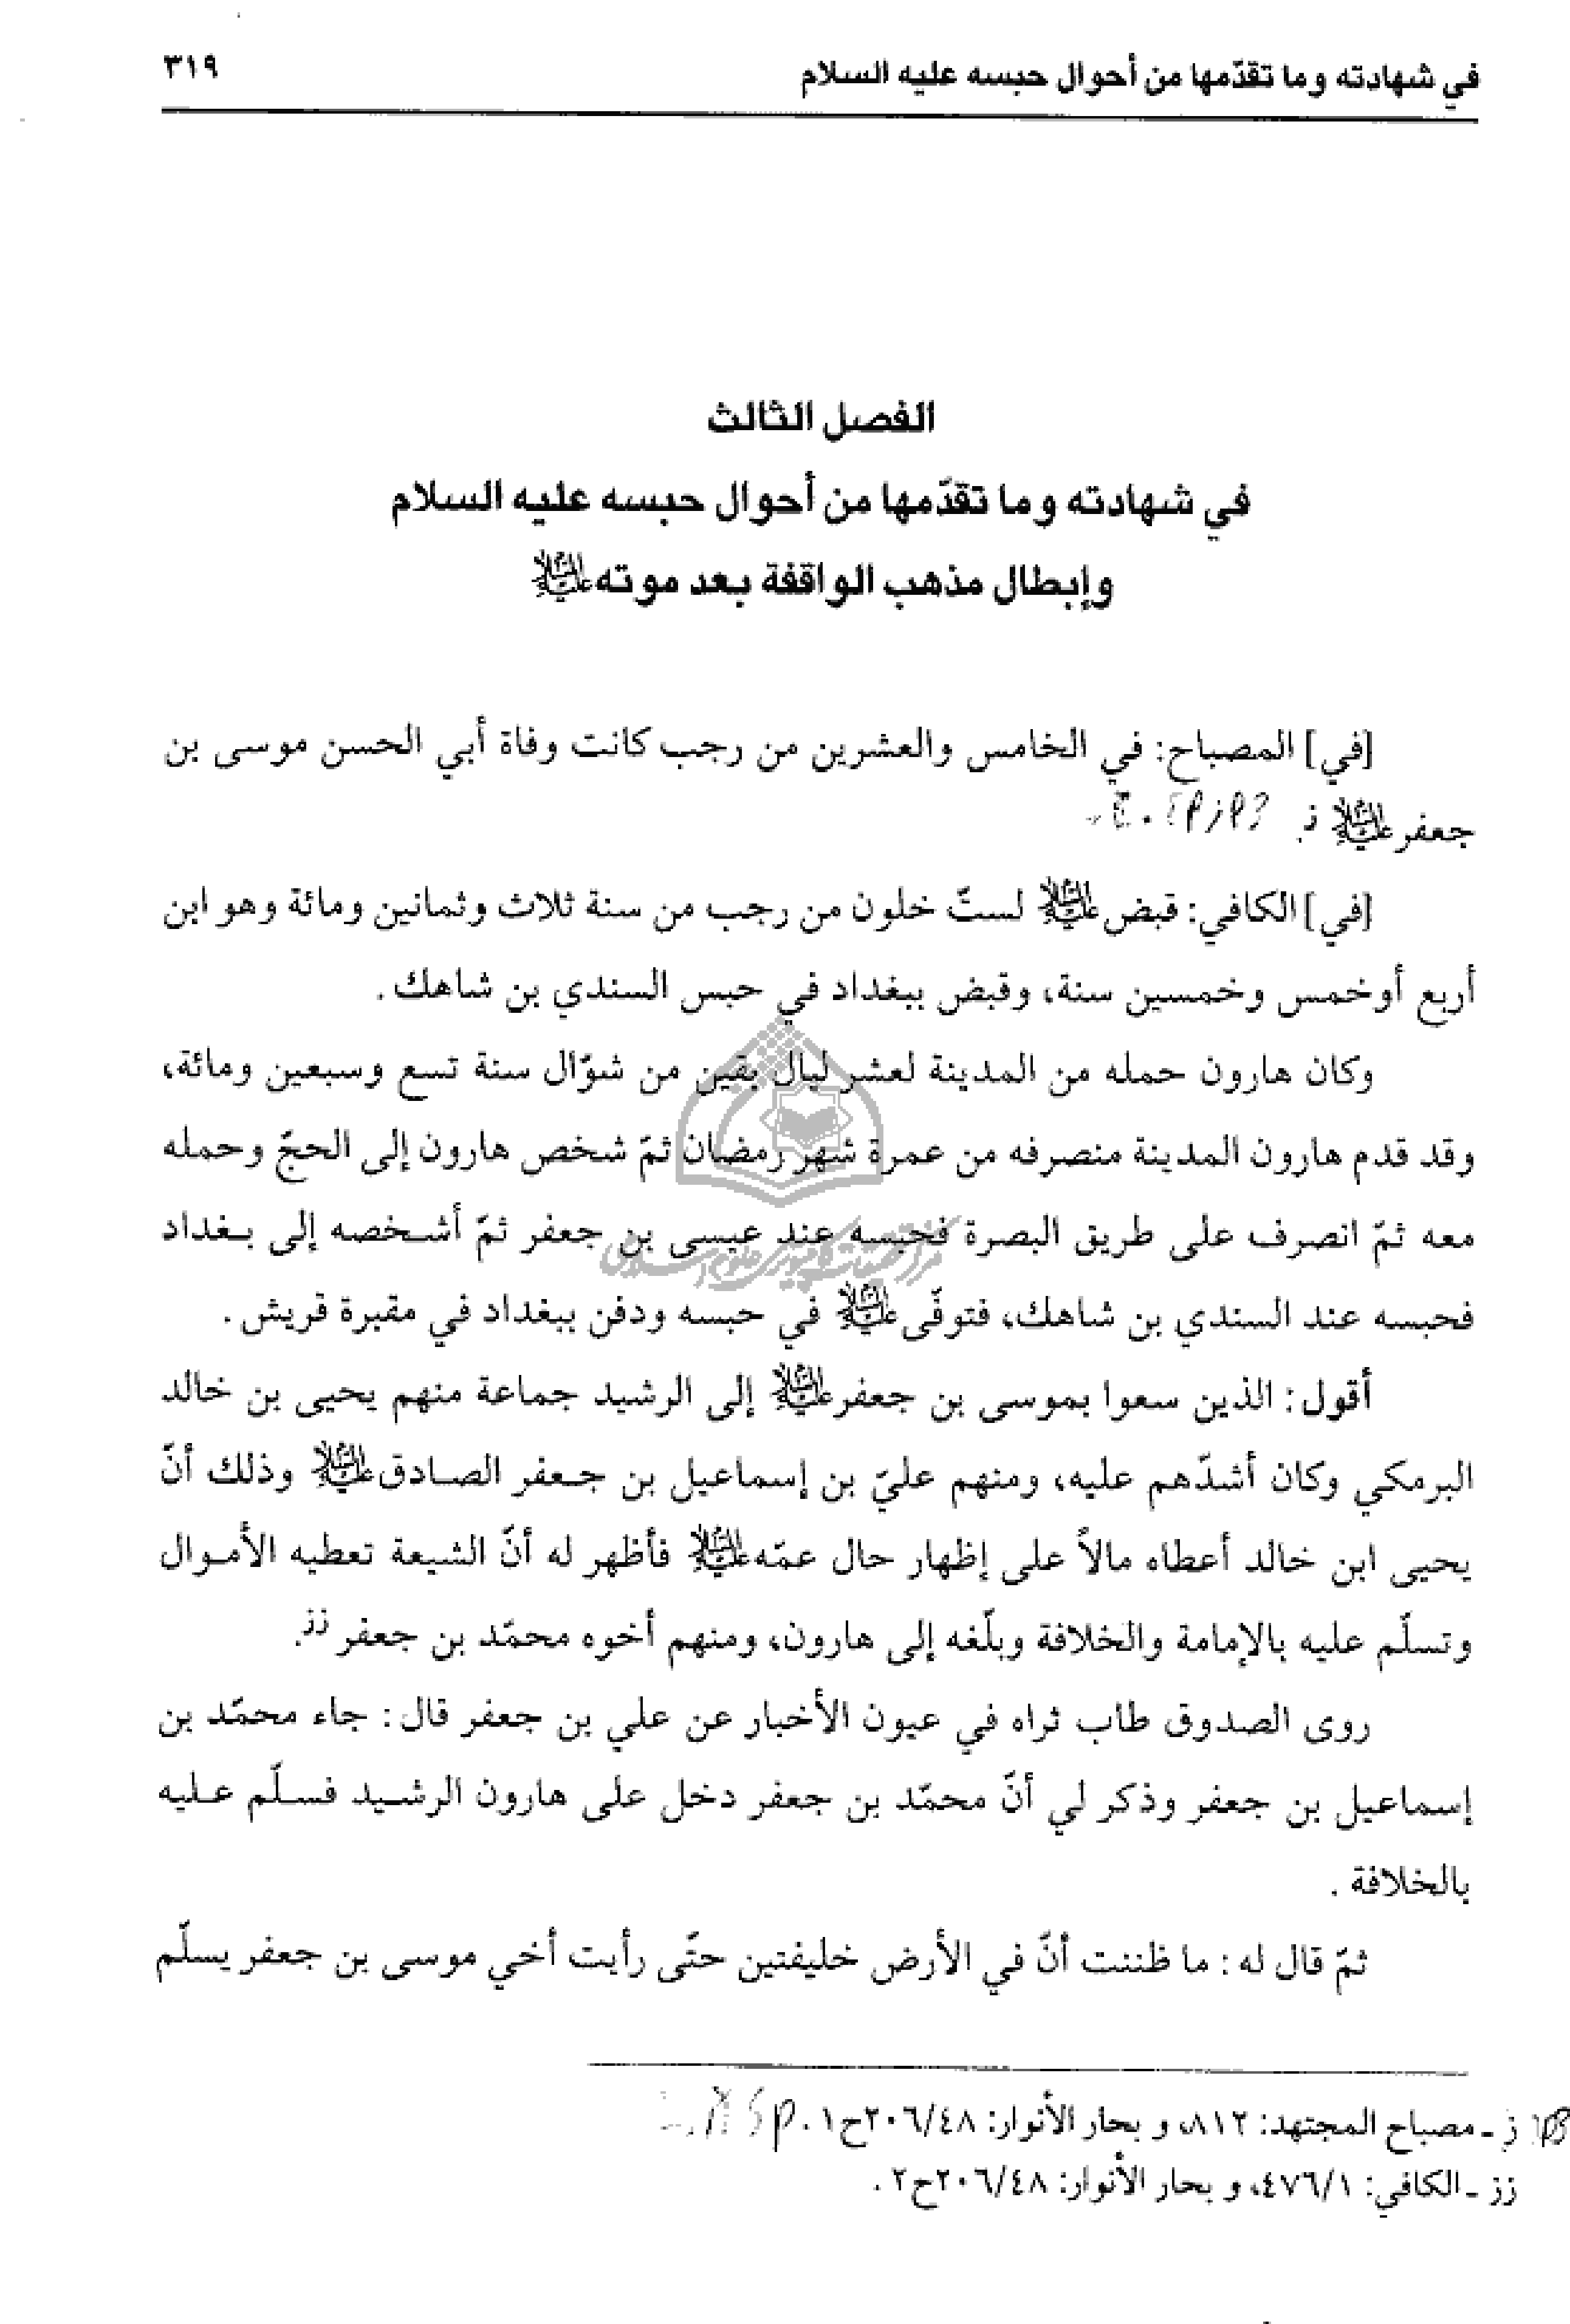 في شهادته وما تقدّمها من أحوال حبسه عليه السلام ٣١٩
الفصل الثالث
في شهادته وما تقدّمها من أحوال حبسه عليه السلام
وإبطال مذهب الواقفة بعد موته عليه السلام
[في] المصباح: في الخامس والعشرين من رجب كانت وفاة أبي الحسن موسى بن
جعفر عليه السلام ز.
[في] الكافي: قبض عليه السلام لستّ خلون من رجب من سنة ثلاث وثمانين ومائة وهو ابن
أربع أوخمس وخمسين سنة، وقبض ببغداد في حبس السندي بن شاهك.
وكان هارون حمله من المدينة لعشر ليال بقين من شوّال سنة تسع وسبعين ومائة،
وقد قدم هارون المدينة منصرفه من عمرة شهر رمضان ثمّ شخص هارون إلى الحجّ وحمله
معه ثمّ انصرف على طريق البصرة فحبسه عند عيسى بن جعفر ثمّ أشخصه إلى بغداد
فحبسه عند السندي بن شاهك، فتوفّى عليه السلام في حبسه ودفن ببغداد في مقبرة قريش.
أقول: الذين سعوا بموسى بن جعفر عليه السلام إلى الرشيد جماعة منهم يحيى بن خالد
البرمكي وكان أشدّهم عليه، ومنهم عليّ بن إسماعيل بن جعفر الصادق عليه السلام وذلك أنّ
يحيى ابن خالد أعطاه مالاً على إظهار حال عمّه عليه السلام فأظهر له أنّ الشيعة تعطيه الأموال
وتسلّم عليه بالإمامة والخلافة وبلّغه إلى هارون، ومنهم أخوه محمّد بن جعفر زز.
روى الصدوق طاب ثراه في عيون الأخبار عن علي بن جعفر قال: جاء محمّد بن
إسماعيل بن جعفر وذكر لي أنّ محمّد بن جعفر دخل على هارون الرشيد فسلّم عليه
بالخلافة.
ثمّ قال له: ما ظننت أنّ في الأرض خليفتين حتّى رأيت أخي موسى بن جعفر يسلّم
ز ـ مصباح المجتهد: ٨١٢، و بحار الأنوار: ٢٠٦/٤٨ح١.
زز ـ الكافي: ٤٧٦/١، و بحار الأنوار: ٢٠٦/٤٨ح٢.